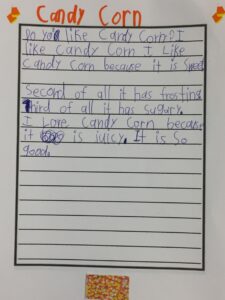 Candy Corn
Do you like Candy Corn? I
like Candy Corn I Like
Candy Corn because it is sweet
Second of all it has frosting
third of all it has sugury.
I Love Candy Corn because
it is juicy. It is so
good.